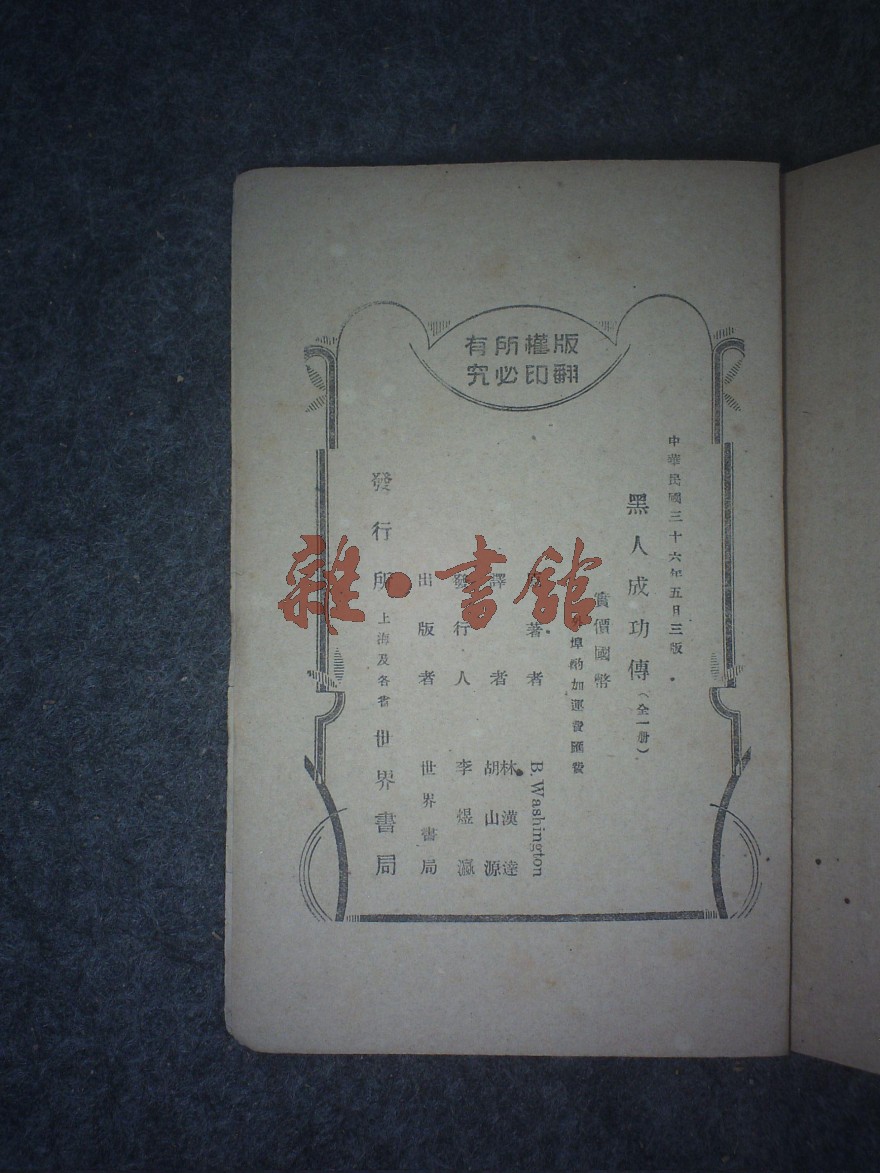 版權所有
翻印必究
中華民國三十六年五月三版
黑人成功傳（全一冊）
實價國幣
埠酌加運費匯費
著者 B. Washington
譯者 林漢達 胡山源
發行人 李煜瀛
出版者 世界書局
發行所 上海及各省 世界書局
雜·書館